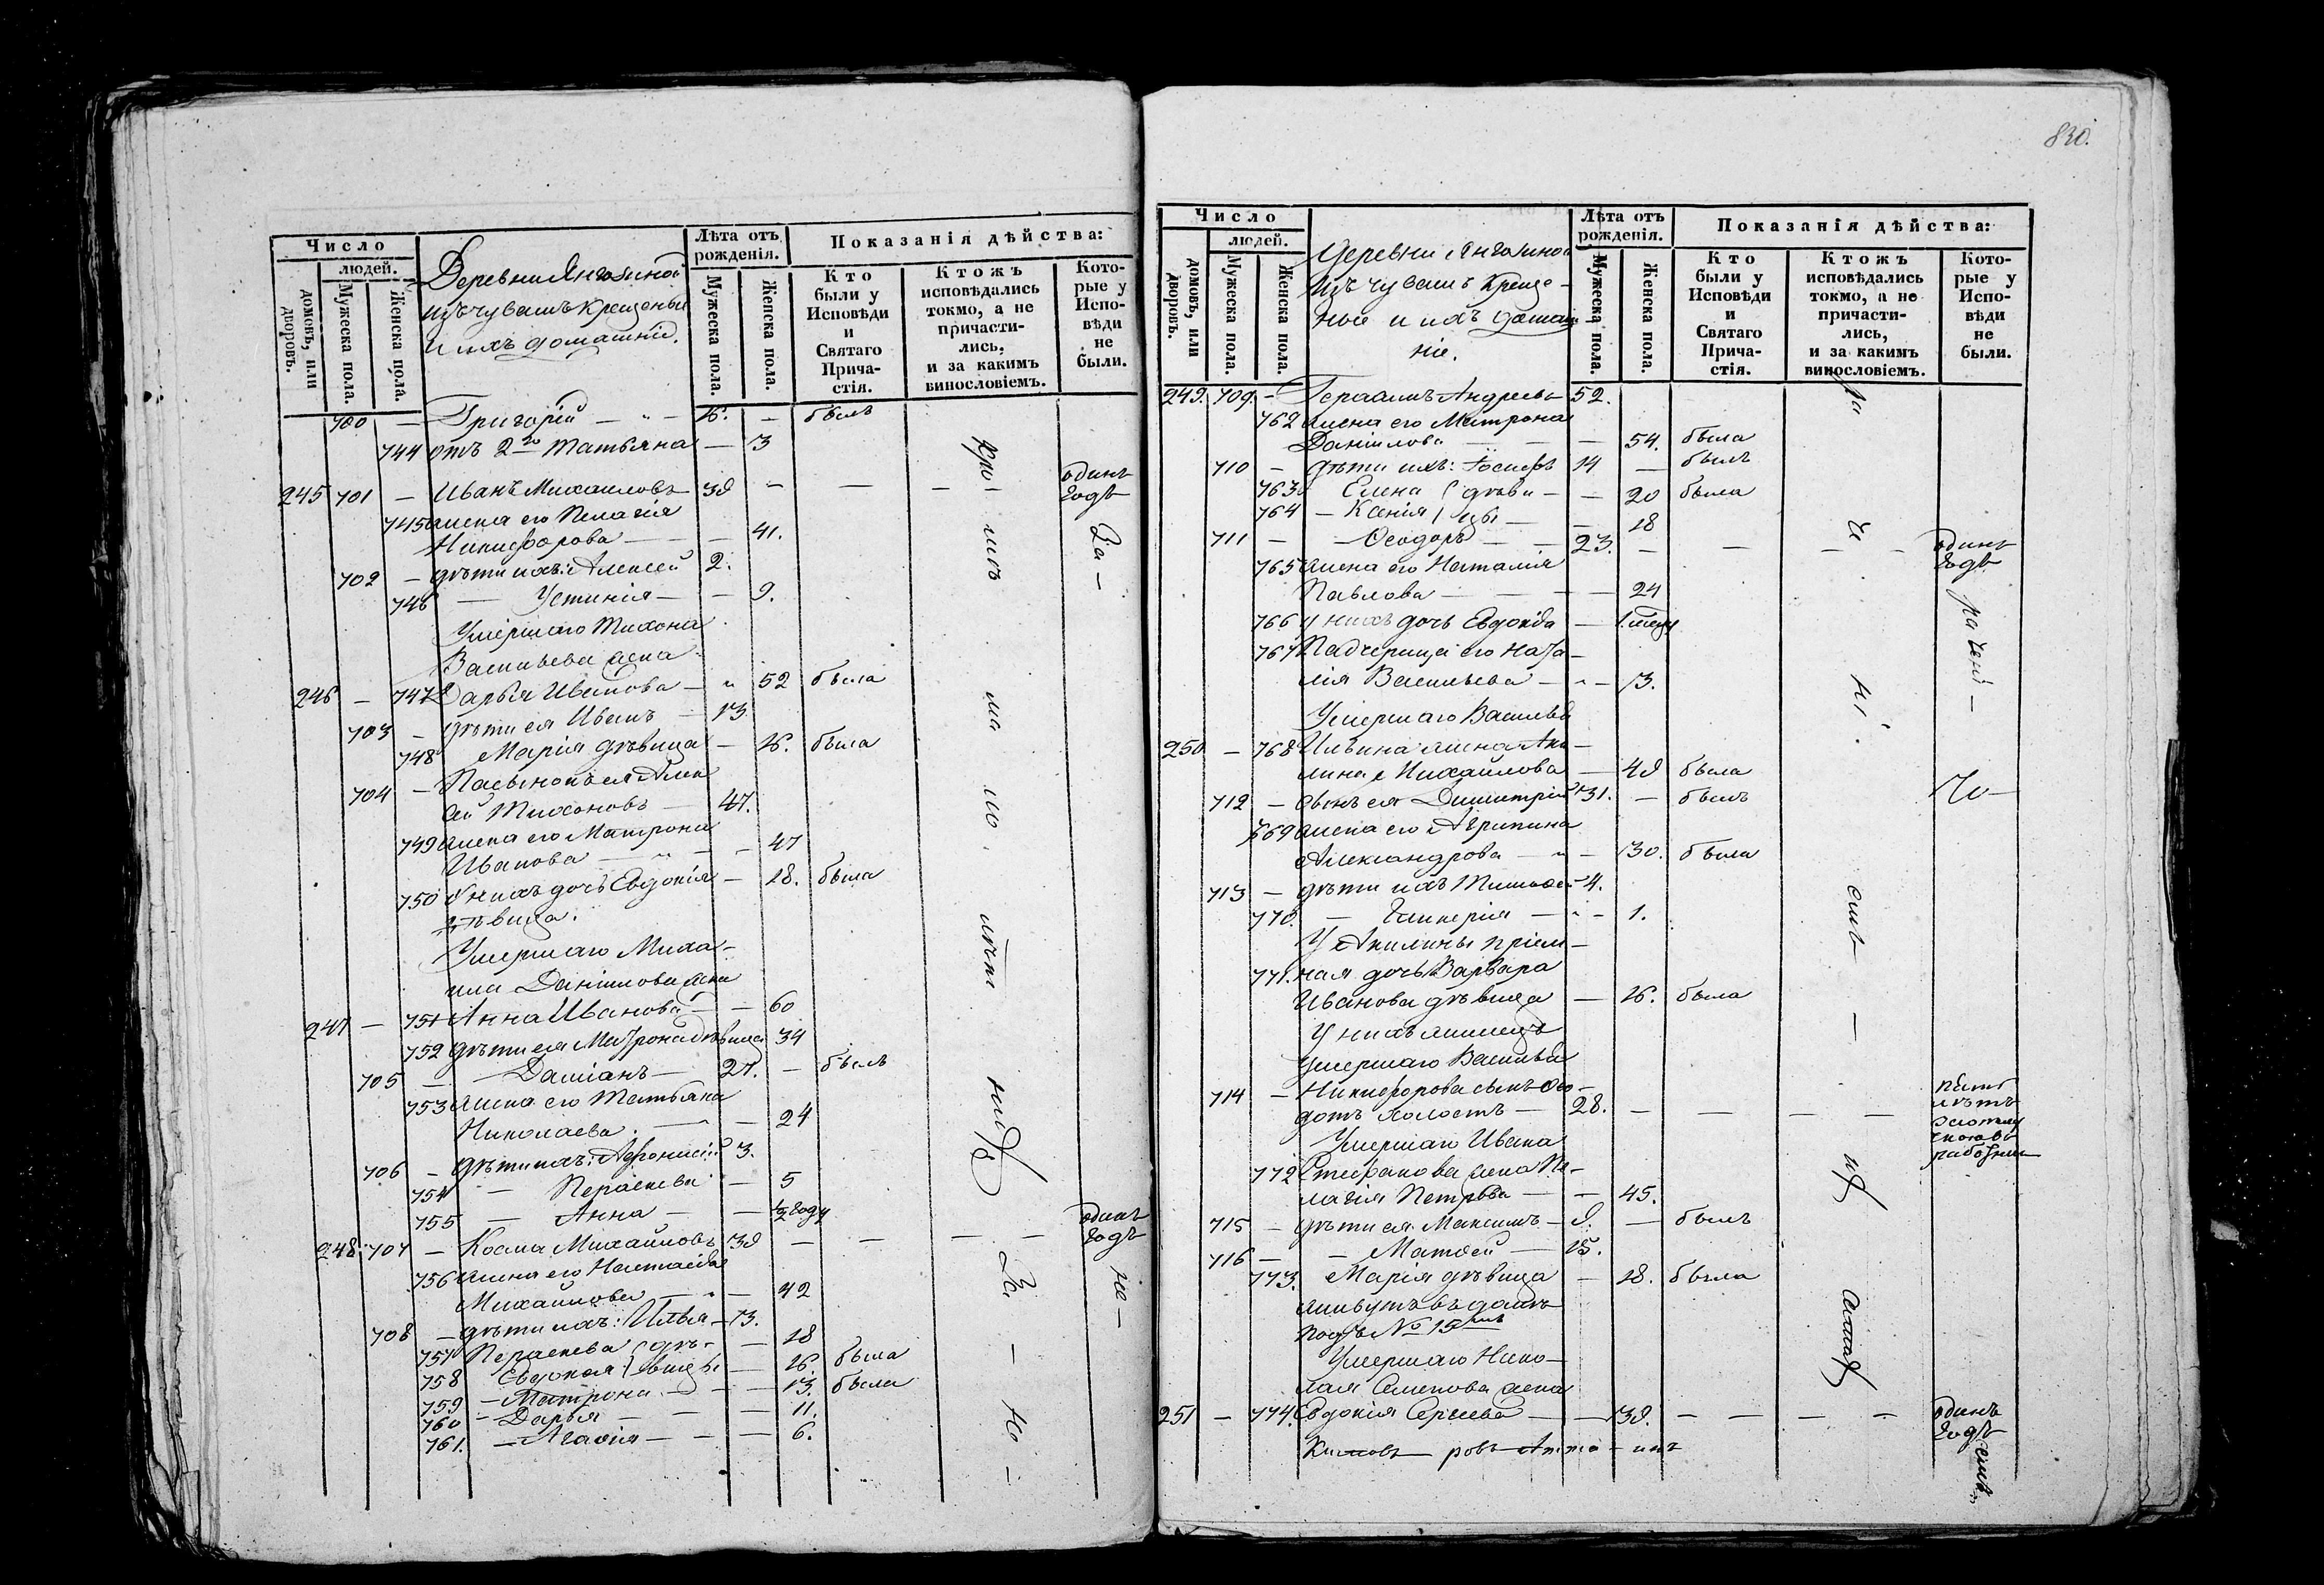 Число
людей.
домовъ, или дворовъ.
Мужеска пола.
Женска пола.
Деревни Янгозиной
изъ чувашъ крещеныи
и ихъ домашніи.
Лѣта отъ рожденія.
Мужеска пола.
Женска пола.
Показанія дѣйства:
Кто были у Исповѣди и Святаго Прича-стія.
Ктожъ исповѣдались токмо, а не причасти-лись, и за какимъ винословіемъ.
Кото-рые у Испо-вѣди не были.
700 — Григорій — „ — 16. — былъ
744 отъ 2го Татьяна — 3
245 701 — Иванъ Михаиловъ 39 — — — одинъ годъ
745 жена его Пелагія
Никифорова — — 41.
702 — дѣти ихъ: Алексей 2.
746 — Устинія — — 9.
Умершаго Тихона
Васильева жена
246 — 747 Дарья Иванова — „ 52 была
703 — дѣти ея Иванъ — 13
748 Марія дѣвица — 16. была
704 — Пасынокъ ея Алек
сѣй Тихоновъ — 47.
749 жена его Матрона
Иванова — „ — — 47
750 У нихъ дочь Евдокія — 18. была
дѣвица.
Умершаго Миха-
ила Данилова жена
247 — 751 Анна Иванова — — 60
752 дѣти ея Матрона дѣвица 34
705 — — Даміанъ — 27. — былъ
753 жена его Татьяна
Николаева. — — 24
706 — дѣти ихъ: Афонасій 3.
754 — Параскева — 5
755 — Анна — — ½ году
248. 707 — Косма Михайловъ 39 — — — — одинъ годъ
756 жена его Настасія
Михайлова — „ — 42
708 — дѣти ихъ: Илья — 13.
757 Параскева дѣ- — 18
758 Евдокія вицы — 16. была
759 — Матрона — — 13. была
760 — Дарья — — — 11.
761. — Агафія — — — 6.
830.
Число
людей.
домовъ, или дворовъ.
Мужеска пола.
Женска пола.
Деревни Янгозиной
изъ чувашъ креще-
ные и ихъ домаш
ніе.
Лѣта отъ рожденія.
Мужеска пола.
Женска пола.
Показанія дѣйства:
Кто были у Исповѣди и Святаго Прича-стія.
Ктожъ исповѣдались токмо, а не причасти-лись, и за какимъ винословіемъ.
Кото-рые у Испо-вѣди не были.
249. 709. — Герасимъ Андреевъ 52.
762 жена его Матрона
Данилова — — — 54. была
710 — дѣти ихъ: Іосифъ 14 — былъ
763 Елена дѣви- — 20 была
764 — Ксенія цы — — 18
711 — — Ѳеодоръ — — 23. — — — — одинъ годъ
765 жена его Наталія
Павлова — — — — 24
766 у нихъ дочь Евдокія —
767 Падчерица его Ната-
лія Васильева — „ — 3.
Умершаго Василья
250 — 768 Ильина жена Аки-
лина Михайлова — 49 была
712 — сынъ ея Димитрій 31. — былъ
769 жена его Агрипина
Александрова — „ — 30. была
713 — дѣти ихъ Тимоѳей 4.
770. — Гликерія — „ — 1.
У Акилины пріем-
771. ная дочь Варвара
Иванова дѣвица — 16. была
У нихъ жилецъ
умершаго Василья
714 — Никифорова сынъ Ѳео-
дотъ холостъ — 28. — — — — пять лѣтъ
Умершаго Ивана
772 Стефанова жена Пе-
лагія Петрова — — 45.
715 — дѣти ея Максимъ — 9. — былъ
716 — — Матѳей — 15.
773. Марія дѣвица — 18. была
живутъ въ домѣ
подъ № 15мъ
Умершаго Нико-
лая Семенова жена
251 — 774. Евдокія Сергеева — — 39. — — — — одинъ годъ